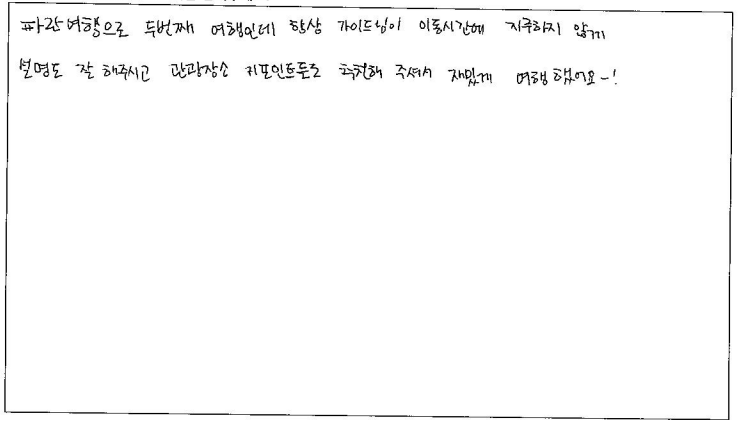 파란여행으로 두번째 여행인데 항상 가이드님이 이동시간에 지루하지 않게
설명도 잘 해주시고 관광장소 추천해 주셔서 재밌게 여행했어요~!